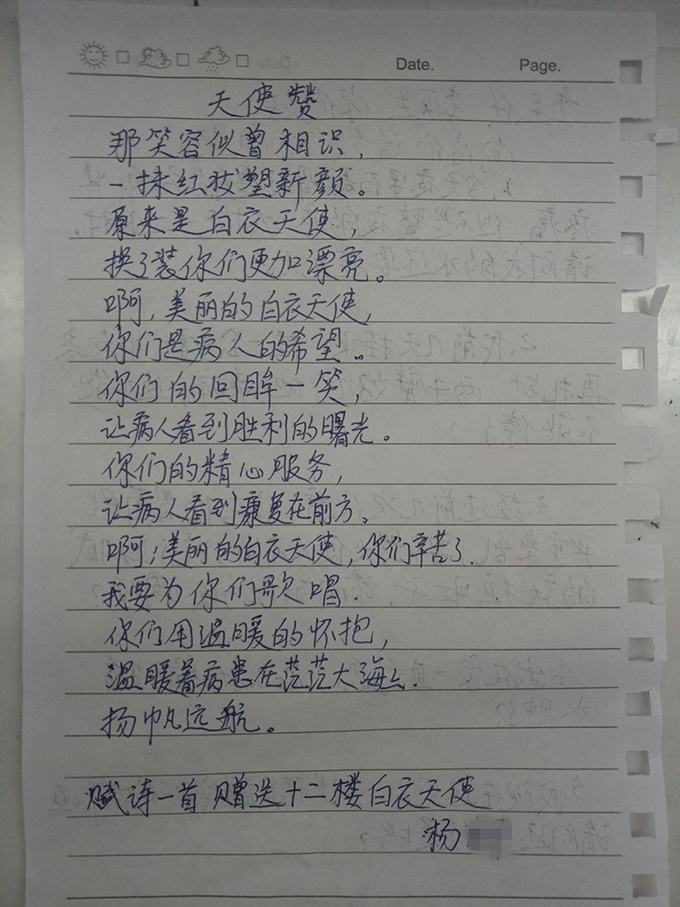 Date.
Page.
天使赞
那笑容似曾相识,
一抹红妆塑新颜。
原来是白衣天使,
换了装你们更加漂亮。
啊,美丽的白衣天使,
你们是病人的希望。
你们的回眸一笑,
让病人看到胜利的曙光。
你们的精心服务,
让病人看到康复在前方。
啊,美丽的白衣天使,你们辛苦了.
我要为你们歌唱.
你们用温暖的怀抱,
温暖着病患在茫茫大海上.
扬帆远航。
赋诗一首赠送十二楼白衣天使
杨